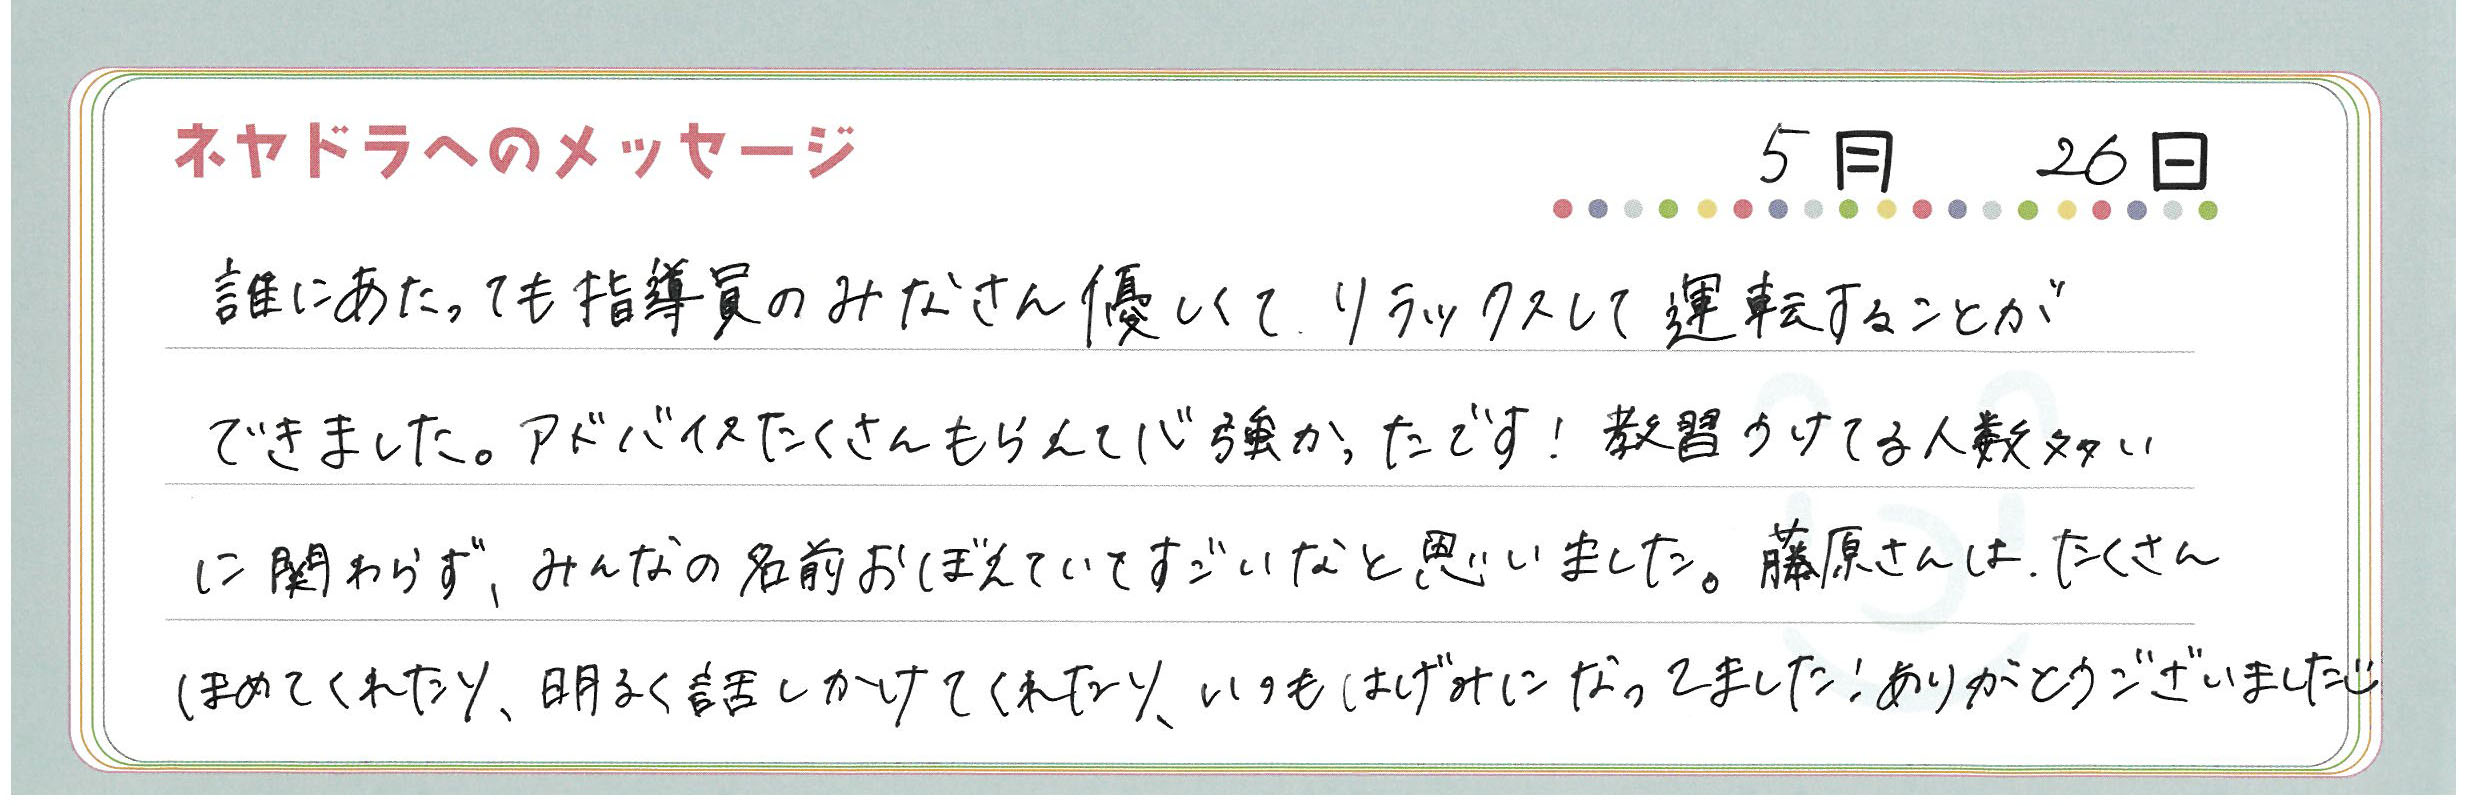 ネヤドラへのメッセージ
5月 26日
誰にあたっても指導員のみなさん優しくて、リラックスして運転することが
できました。アドバイスたくさんもらえて心強かったです!教習うけてる人数多い
に関わらず、みんなの名前おぼえていてすごいなと思いました。藤原さんは、たくさん
ほめてくれたり、明るく話しかけてくれたり、いつもはげみになってました!ありがとうございました